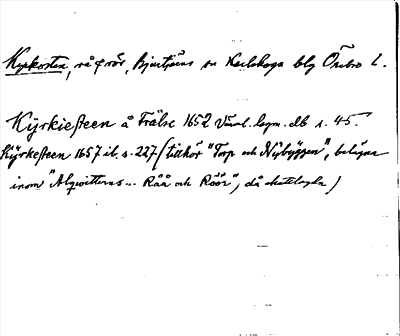 Kyrksten, rå o rör, Bjurtjärns sn Karlskoga blg Örebro l.
Kÿrkiesteen å Frälse 1652 Värml. lagm. db s. 45.
Kÿrkesteen 1657 ib. s. 227 (tillhör "Torp och Nybyggen", belägna
inom "Alqwitterns... Råå och Röör", då skattlagda)